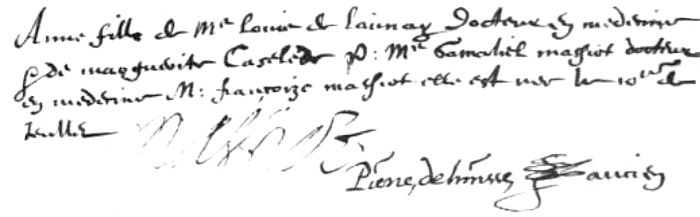 Anne fille de Me Louis de Launay Docteur en medecine
& de marguerite Caselede p: Mr Gamaliel massiot docteur
en medecine M: françoize massiot elle est nee le 10me de
Juillet
Pierre ancien